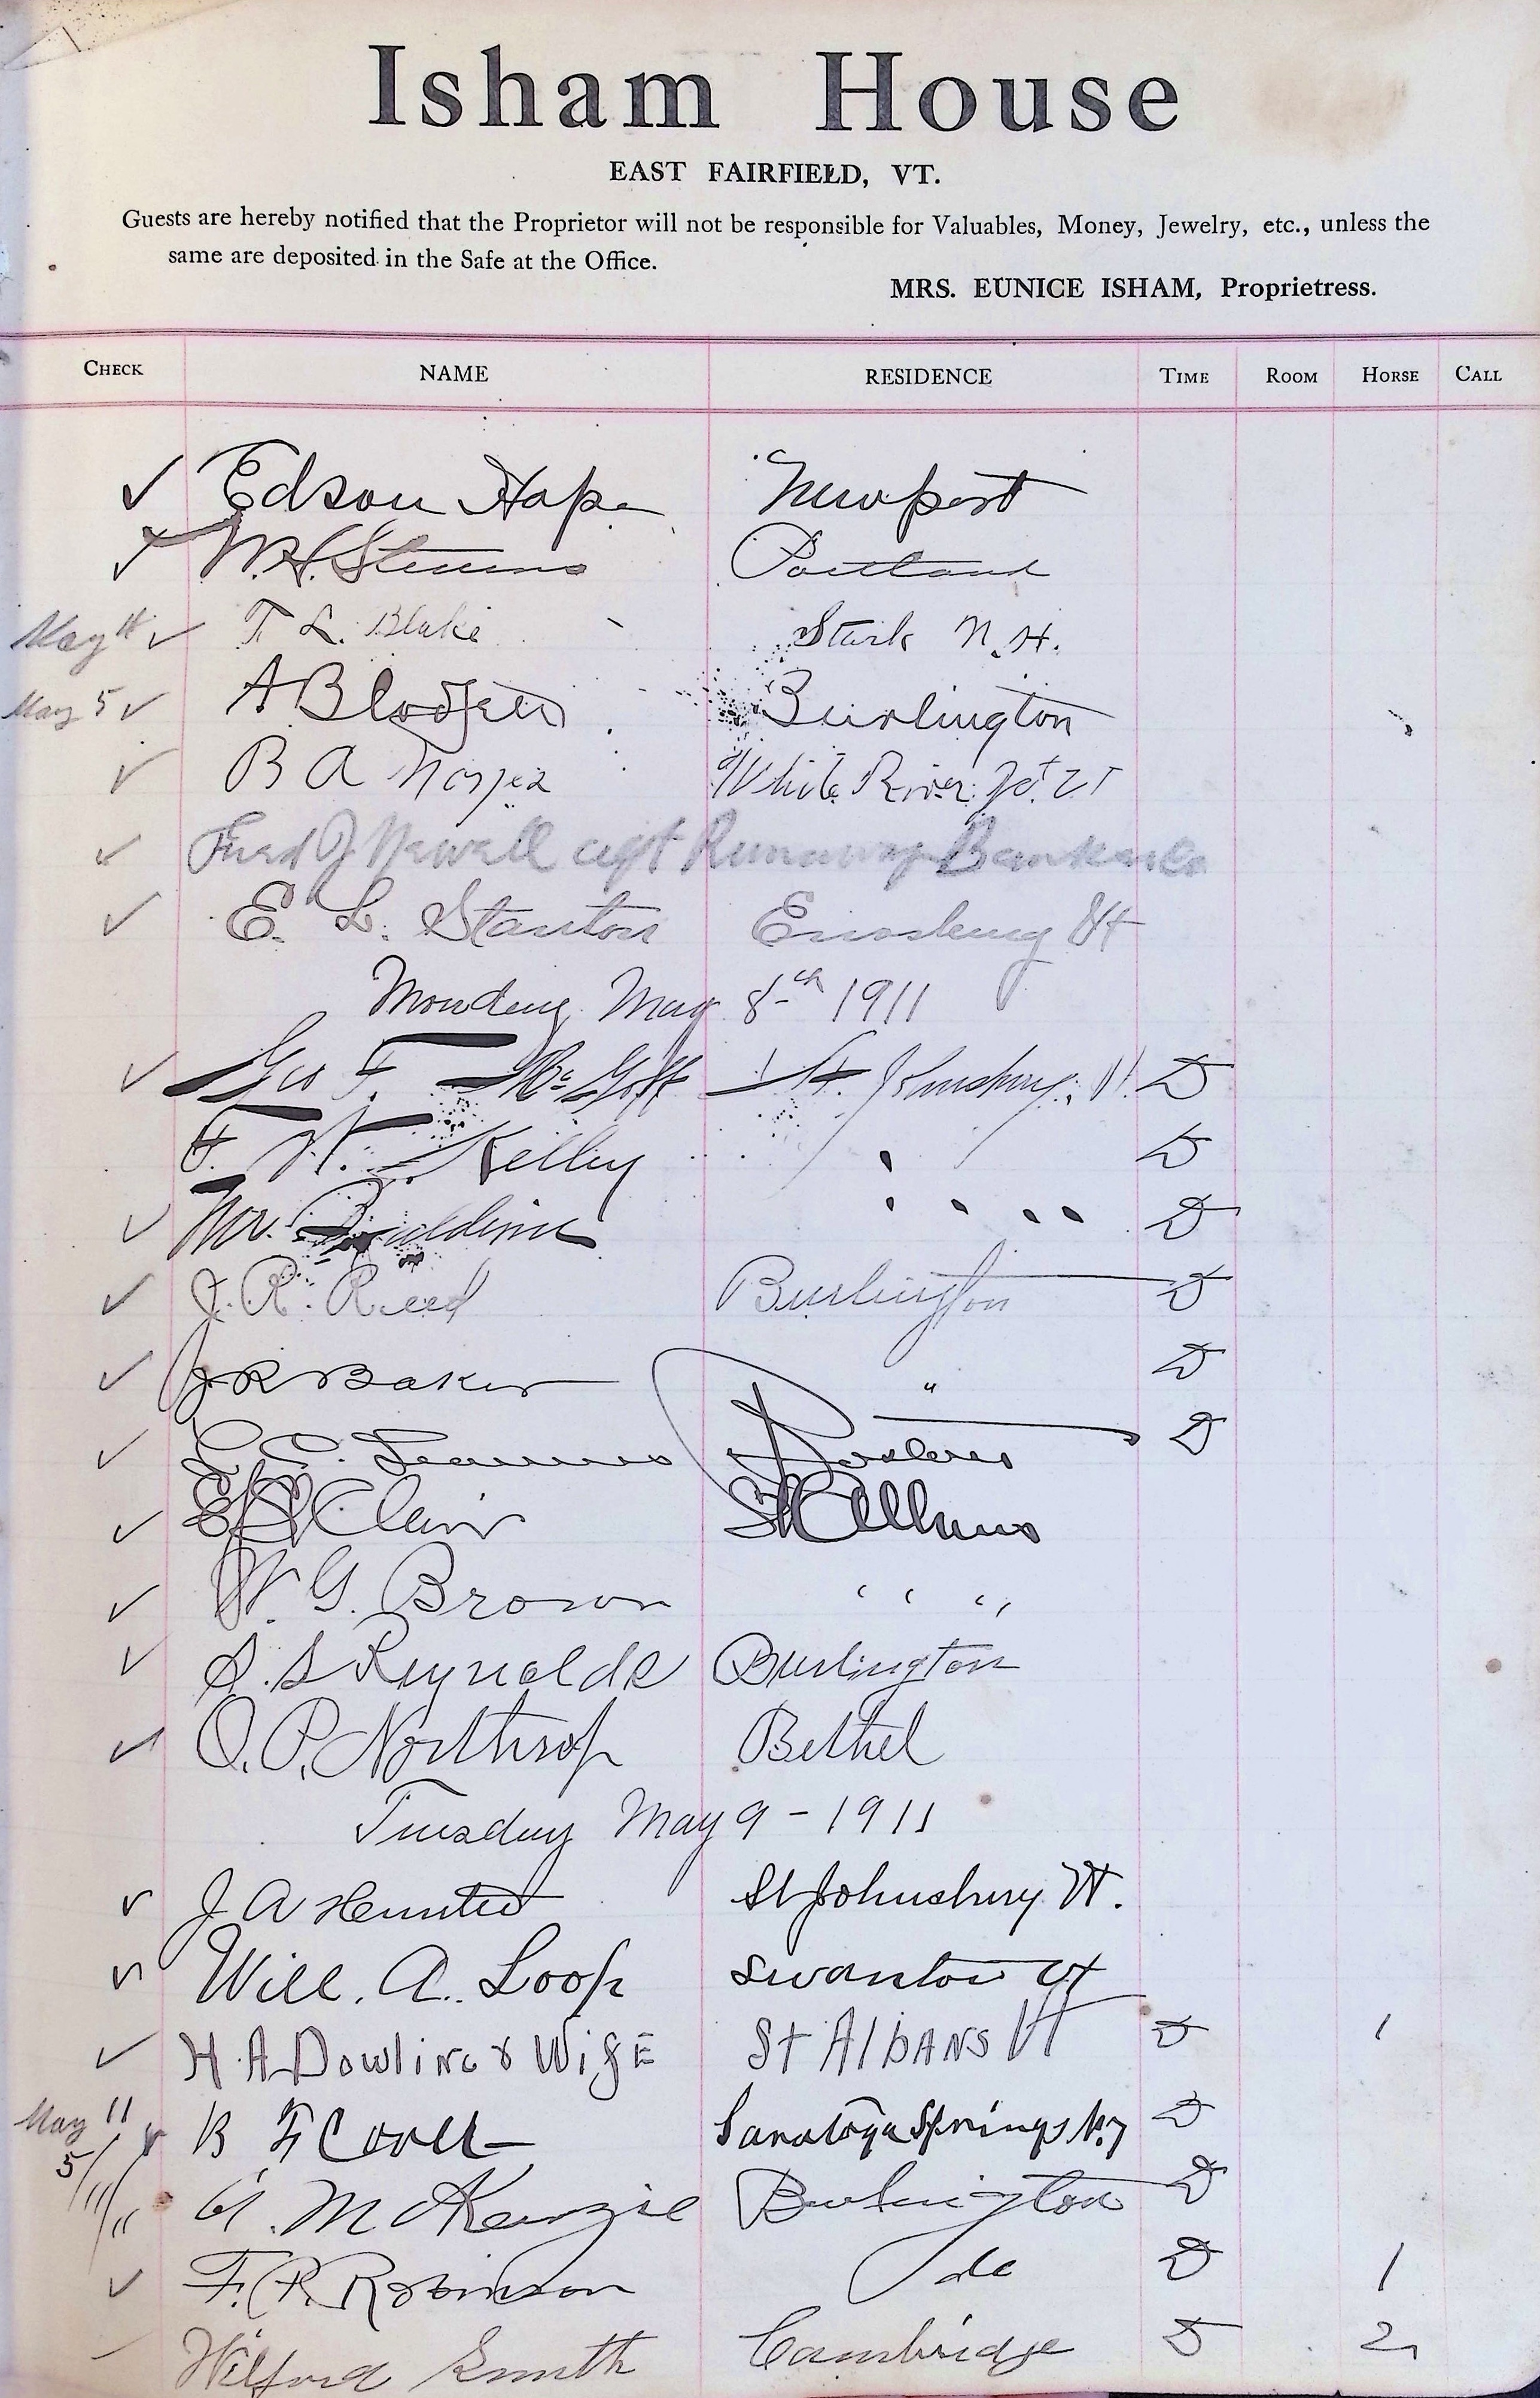 Isham House
EAST FAIRFIELD, VT.
Guests are hereby notified that the Proprietor will not be responsible for Valuables, Money, Jewelry, etc., unless the
same are deposited in the Safe at the Office.
MRS. EUNICE ISHAM, Proprietress.
CHECK NAME RESIDENCE TIME ROOM HORSE CALL
✓ Edson Hope Newport
✓ W.H. Stevens Portland
May 11 ✓ T. L. Blake Stark N.H.
May 5 ✓ A Blodgett Burlington
✓ B A White River Jct. Vt
✓ Fred J Newell Runaway
✓ E. L. Stanton Enosburg Vt
Monday May 8th 1911
✓ Geo F. McGoff St. Johnsbury, Vt D
Kelley " D
✓ " " " " D
✓ J. R. Reed Burlington D
✓ J R Baker " D
✓ Boston D
✓ Clair St Albans
✓ W. G. Brown " " "
✓ S. S Reynolds Burlington
✓ O. P. Northrop Bethel
Tuesday May 9 - 1911
✓ J A Hunter St Johnsbury Vt.
✓ Will. A. Loop Swanton Vt
✓ H. A Dowling & Wife St Albans Vt D 1
May 11 ✓ B F Saratoga Springs N.Y D
5/11/11 McKenzie Burlington D
✓ F. P. Robinson do D 1
Wilford Smith Cambridge D 2